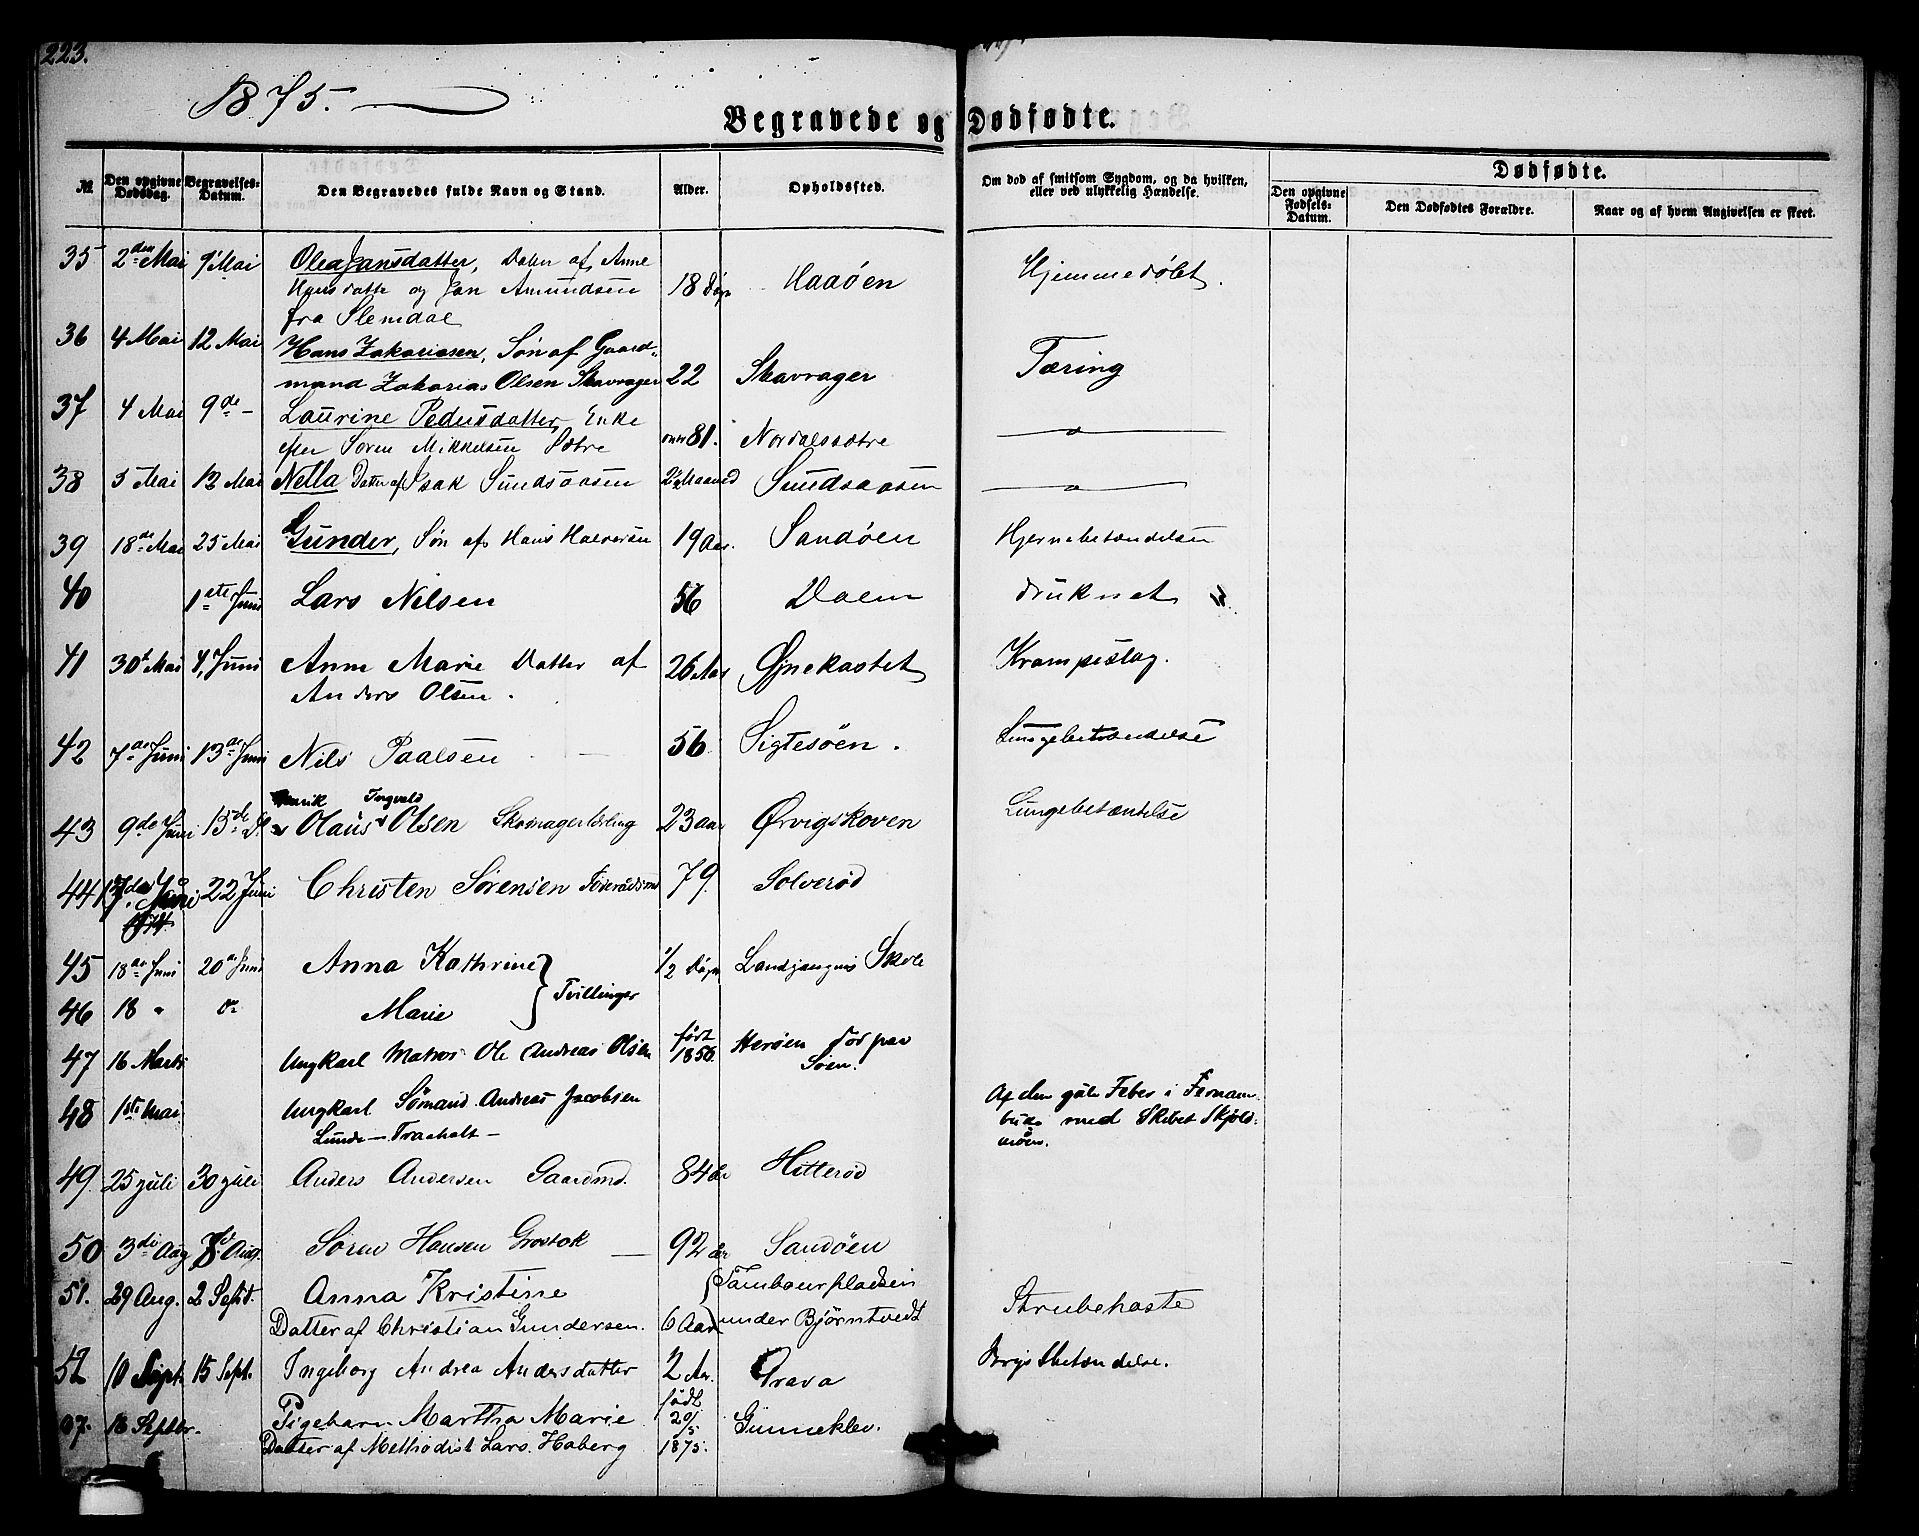 223.
1875.
Begravede og Dødfødte.
№
Den opgivne Dødsdag.
Begravelses-Datum.
Den Begravedes fulde Navn og Stand.
Alder.
Opholdssted.
Om død af smitsom Sygdom, og da hvilken,
eller ved ulykkelig Hændelse.
Dødfødte.
Den opgivne Fødsels-Datum.
Den Dødfødtes Forældre.
Naar og af hvem Angivelsen er skeet.
35 2den Mai 9' Mai Olea Jansdatter, Datter af Anne
og Jan Amundsen 18 Døgn Haaøen
fra Slemdal
36 4 Mai 12 Mai Hans Zakariasen, Søn af Gaard-
mand Zakarias Olsen Skavrager 22 Skavrager Tæring
37 4 Mai 9de - Laurine Pedersdatter, Enke
efter Søren Mikkelsen Sætre 81. Nordalssætre
38 5 Mai 12 Mai Nella Datter af Isak Sundsaasen 2½ Maaned Sundsaasen
39 18de Mai 25 Mai Gunder, Søn af Hans Halvorsen 19 Aar. Sandøen Hjernebetændelsen
40 1ste Juni Lars Nilsen 56 Dalen druknet
41 30te Mai 4, Juni Anne Marie Datter af 26 Aar Øjnekastet Krampeslag.
Anders Olsen.
42 7de Juni 13de Juni Nils Paalsen 56 Sigtesøen. Lungebetændelse
Ingvald
43 9de Juni 15de Olaus Olsen Skomagerlærling 23 aar Ørvigskoven Lungebetændelse
44 17de Juni 22 Juni Christen Sørensen 79. Solverød
45 18de Juni 20de Juni Anna Kathrine ½ Døgn Landgangens Skole
Tvillinger
46 18 " do Marie
47 16 Marts Ungkarl Matros Ole Andreas Olsen født 1856 Herøen død paa
Søen.
48 1ste Mai Ungkarl Sømand Andreas Jacobsen Af den gule Feber i Fernam-
Lunde - Traaholt - buko med Skibet Skjold-
møen.
49. 25 juli 30 juli Anders Andersen Gaardmd. 84 år Hitterød
50 3die Aug 8 Aug. Søren Hansen Grostok 92 år Sandøen
51. 29 Aug. 2 Sept. Anna Kristine Tambourpladsen
Datter af Christian Gundersen. 6 Aar under Bjørntvedt Strubehoste
52 10 Sept. 15 Sept. Ingeborg Andrea Andersdatter 2 Aar. Grava Brystbetændelse.
07. 16 Septbr. Pigebarn Martha Marie født 20/5 1875. Gunneklev.
Datter af Methodist Lars Haberg